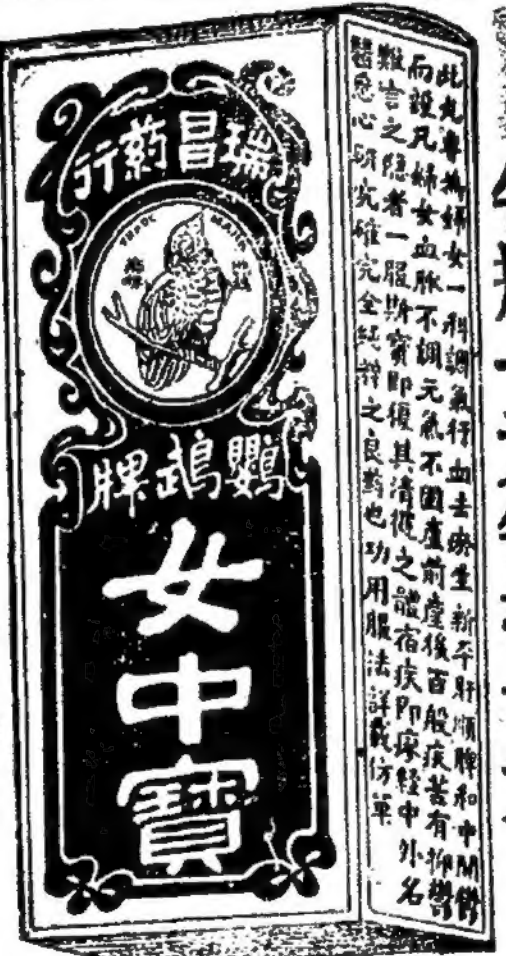 瑞昌葯行
TRADE MARK
鸚鵡牌
女中寶
此丸專為婦女一科調氣行血去瘀生新平肝順脾和中開鬱
而設凡婦女血脈不調元氣不固產前產後百般疾苦有抑鬱
難言之隱者一服斯寶即復其清健之體宿疾即瘳經中外名
醫悉心研究確完全純粹之良葯也功用服法詳載仿單